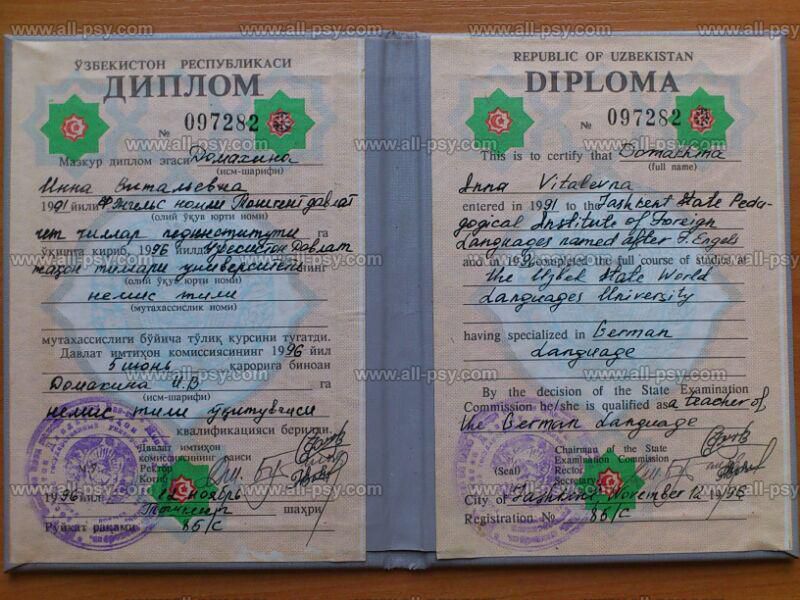 www.all-psy.com www.all-psy.com www.all-psy.com
ЎЗБЕКИСТОН РЕСПУБЛИКАСИ
ДИПЛОМ
№ 097282
Мазкур диплом эгаси Домахина
(исм-шарифи)
Инна Витальевна
1991 йили Ф. Энгельс номли Тошкент давлат
(олий ўқув юрти номи)
чет тиллар пединститути га
ўқишга кириб, 1996 йилда Ўзбекистон Давлат
жаҳон тиллари университетининг
(олий ўқув юрти номи)
немис тили
(мутахассислик номи)
мутахассислиги бўйича тўлиқ курсини тугатди.
Давлат имтиҳон комиссиясининг 1996 йил
5 июнь қарорига биноан
Домахина И.В. га
(исм-шарифи)
немис тили ўқитувчиси
квалификацияси берилди.
Давлат имтиҳон
комиссиясининг раиси
Ректор
Котиб
1996 йил 12 ноябрь
Тошкент шаҳри
Рўйхат рақами 86/С
REPUBLIC OF UZBEKISTAN
DIPLOMA
№ 097282
This is to certify that Domakhina
(full name)
Inna Vitalevna
entered in 1991 to the Tashkent State Peda-
gogical Institute of Foreign
Languages named after F. Engels
and in 1996 completed the full course of studies at
the Uzbek State World
Languages University
having specialized in German
Language
By the decision of the State Examination
Commission he/she is qualified as a teacher of
the German Language
Chairman of the State
Examination Commission
(Seal) Rector
Secretary
City of Tashkent, November 12 1996
Registration № 86/C